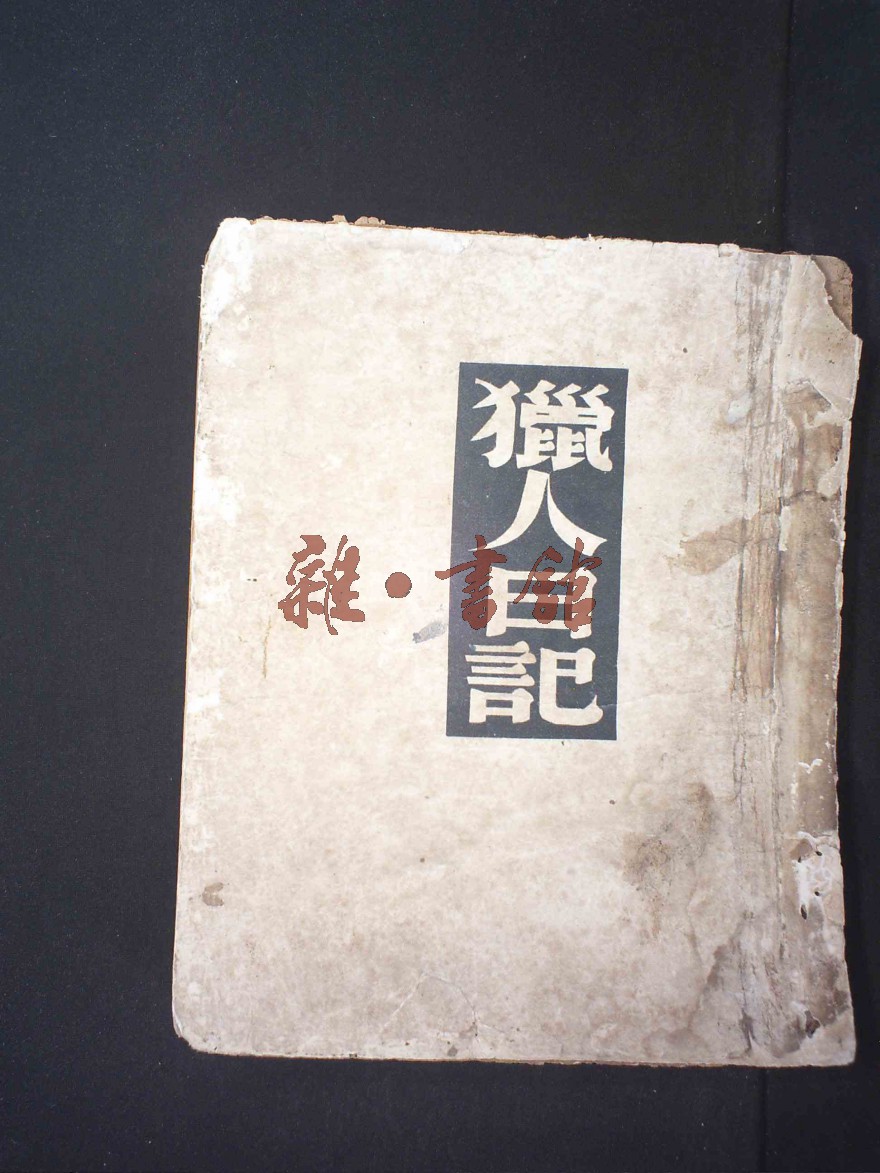 獵人日記
雜·書館